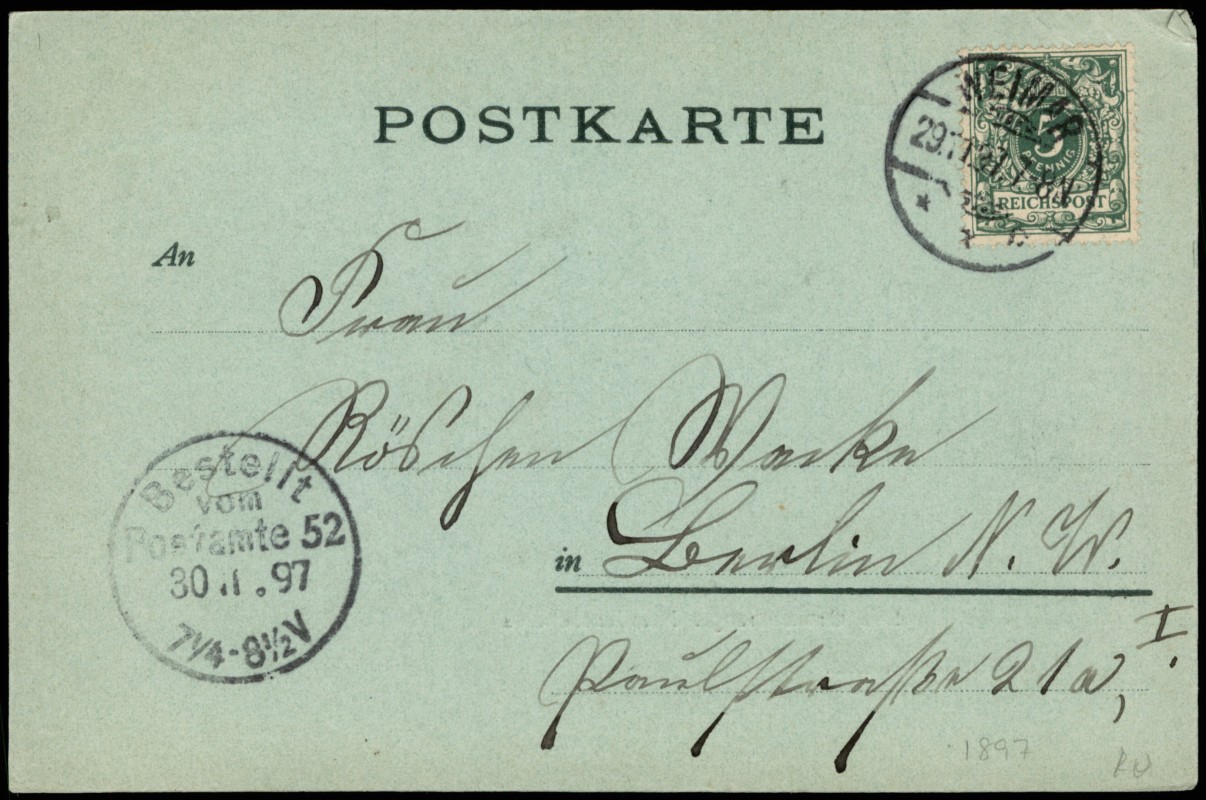 POSTKARTE
WEIMAR
29.11.97. 7-8N.
5
PFENNIG
REICHSPOST
An
Frau
Röschen Wacke
in Berlin N. W.
Paulstraße 21a, I.
Bestellt
vom
Postamte 52
30.11.97
7¼-8½V
1897